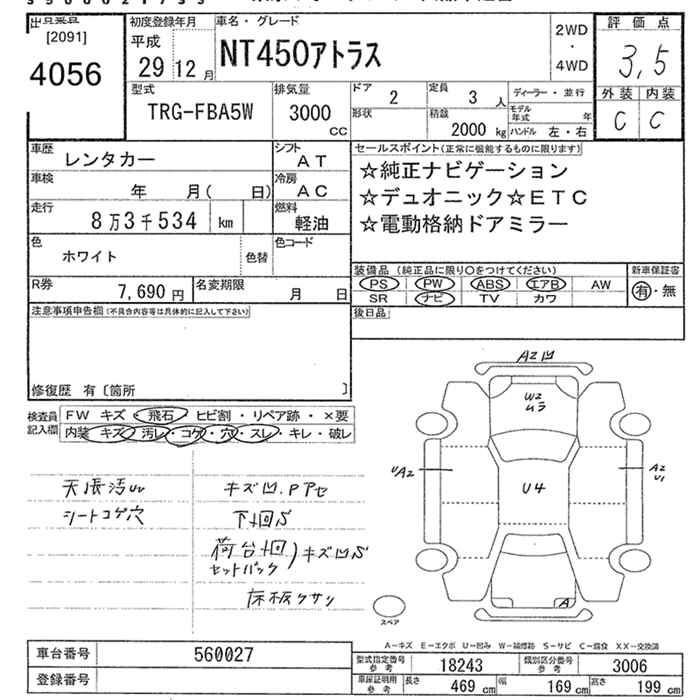 [2091]
4056
初度登録年月
平成
29 12 月
車名・グレード
NT450アトラス
2WD
・
4WD
評価点
3,5
外装 内装
C C
型式
TRG-FBA5W
排気量
3000
CC
ドア
2
定員
3 人
形状
積載
2000 kg
ディーラー・並行
モデル年式 年
ハンドル 左・右
車歴 レンタカー
シフト AT
車検 年 月( 日)
冷房 AC
走行 8万3千534 km
燃料 軽油
色 ホワイト
色替
色コード
R券 7,690 円
名変期限 月 日
セールスポイント(正常に機能するものに限ります)
☆純正ナビゲーション
☆デュオニック☆ETC
☆電動格納ドアミラー
装備品 (純正品に限り○をつけてください)
PS PW ABS エアB AW
SR ナビ TV カワ
新車保証書
有・無
後日品
注意事項申告欄(不具合内容等は具体的に記入して下さい)
修復歴 有〔箇所 〕
検査員記入欄
FW キズ・飛石・ヒビ割・リペア跡・×要
内装 キズ・汚レ・コゲ・穴・スレ・キレ・破レ
天張汚
シートコゲ穴
キズ凹.Pアセ
下廻S
荷台廻)キズ凹S
セットバック
床板クサリ
AZ凹
W2
ムラ
UA2
U4
A2
U1
A
スペア
A-キズ E-エクボ U-凹み W-補修跡 S-サビ C-腐食 XX-交換済
車台番号 560027
登録番号
型式指定番号 参考 18243
類別区分番号 参考 3006
車庫証明用 参考 長さ 469 cm 幅 169 cm 高さ 199 cm